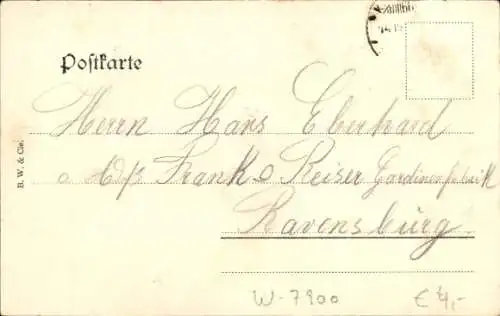 Postkarte
Herrn Hans Eberhard
Frank & Reiser Gardinenfabrik
Ravensburg
B. W. & Cie.
W-7900 € 4,-